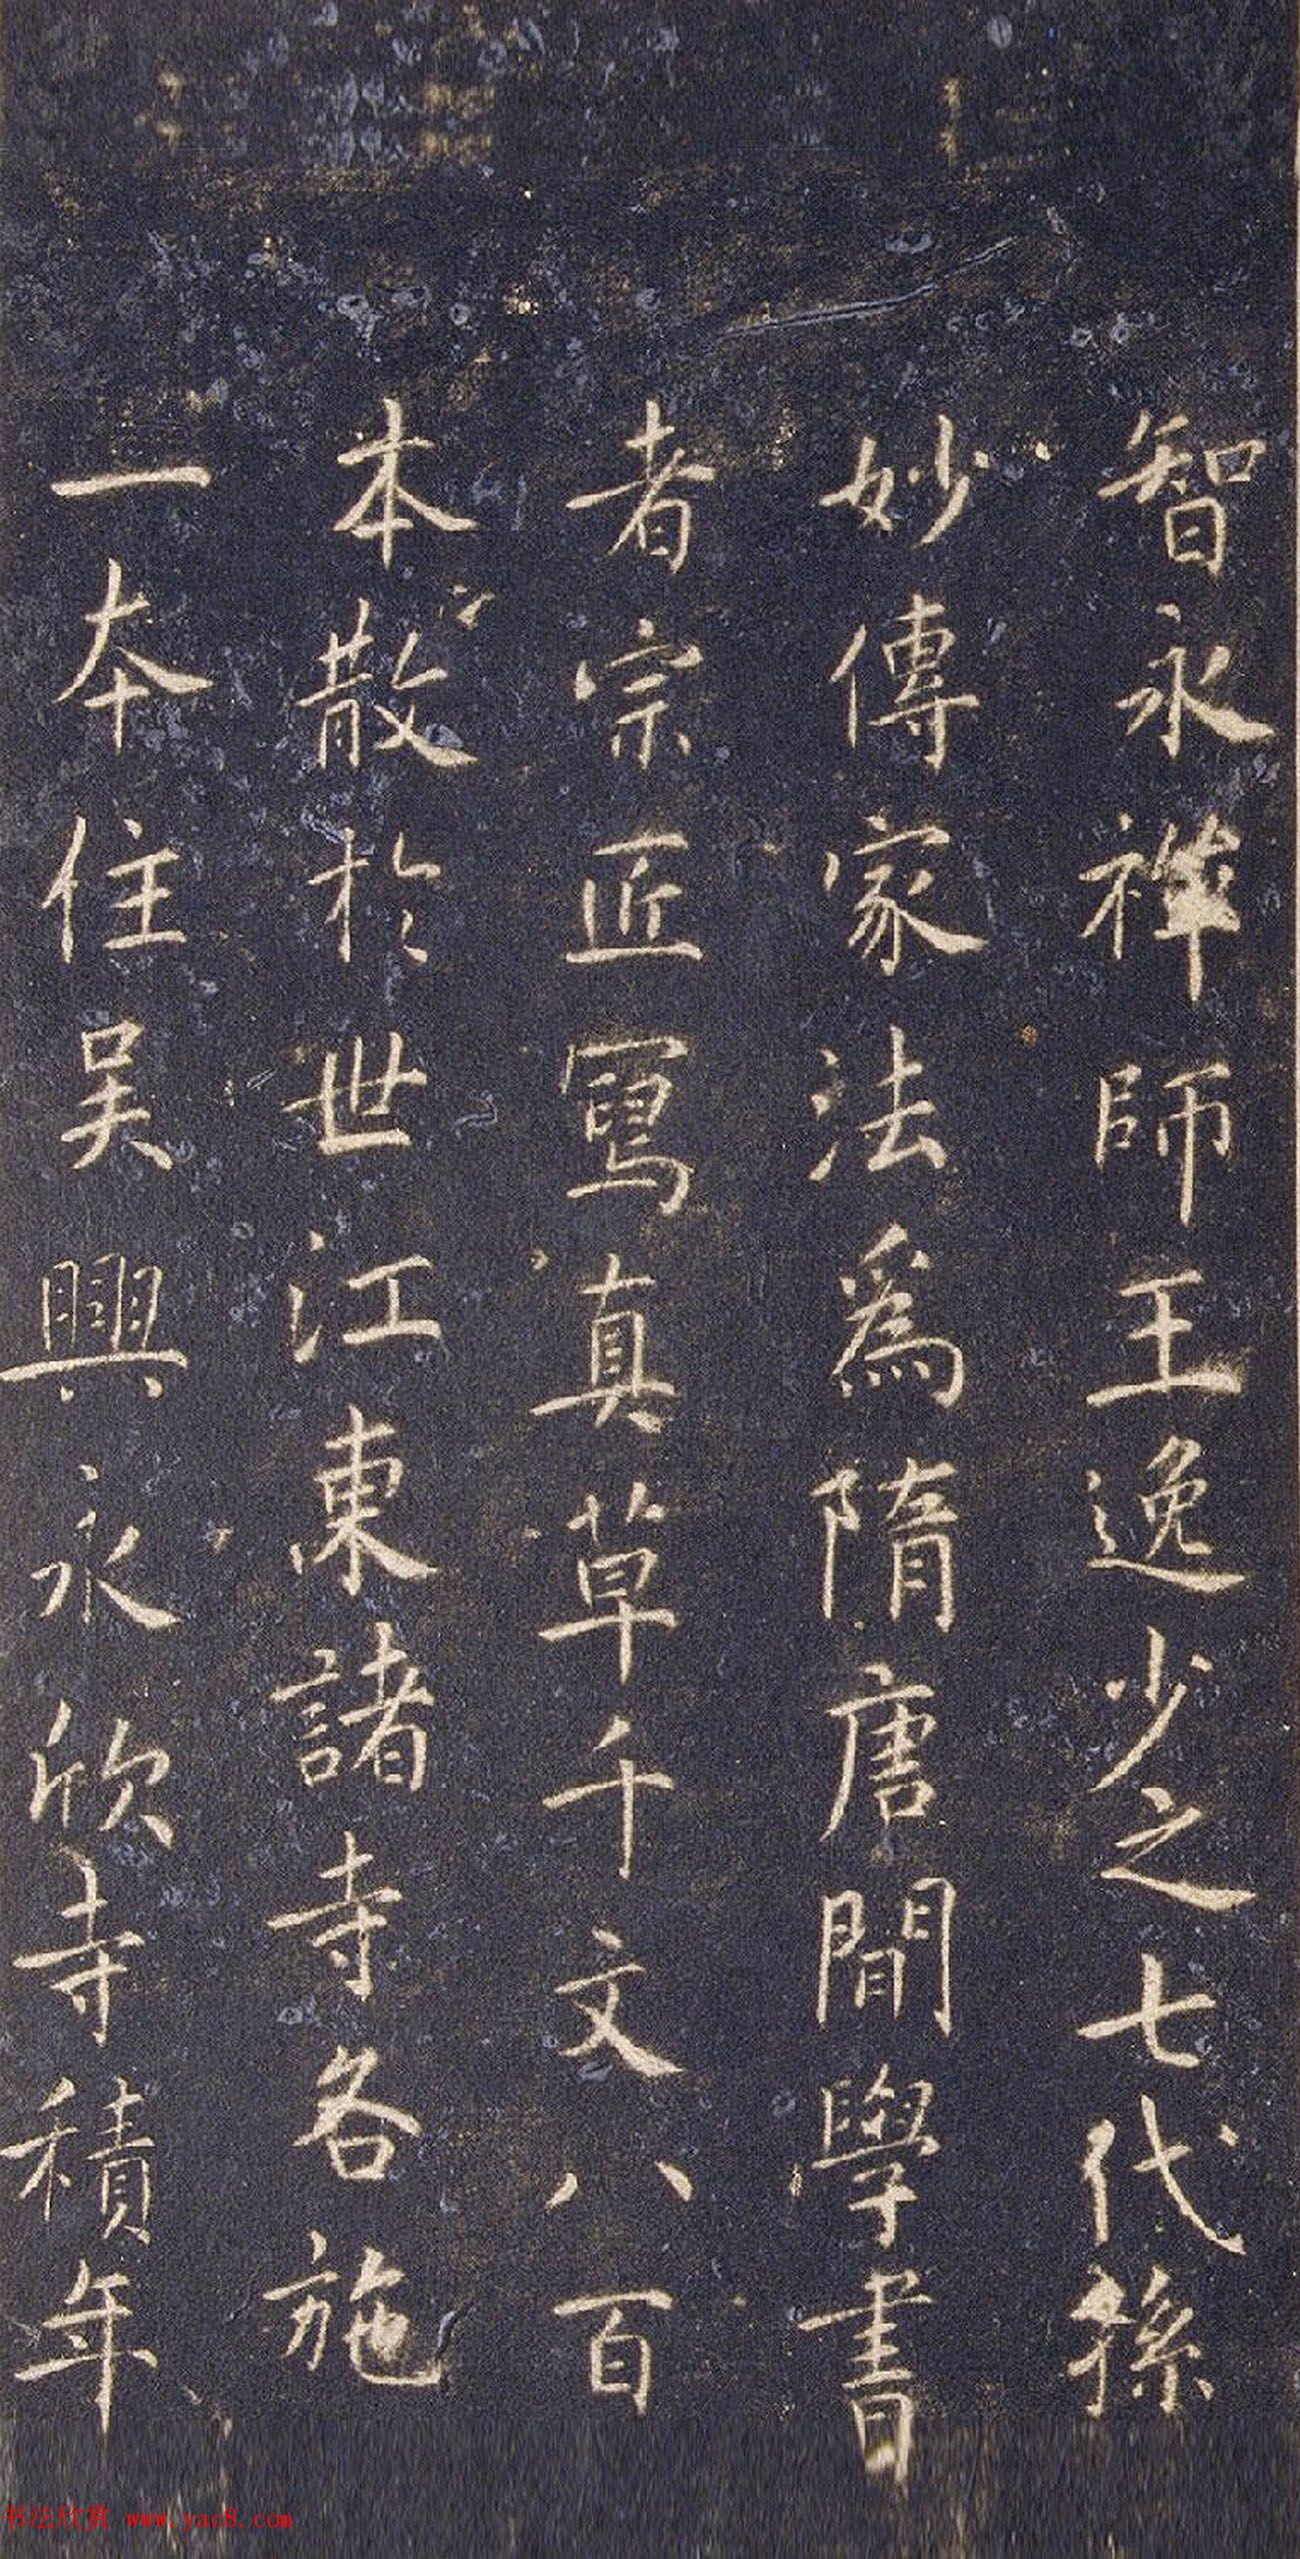 智永禪師王逸少之七代孫
妙傳家法為隋唐間學書
者宗匠寫真草千文八百
本散於世江東諸寺各施
一本住吳興永欣寺積年
书法欣赏 www.yac8.com